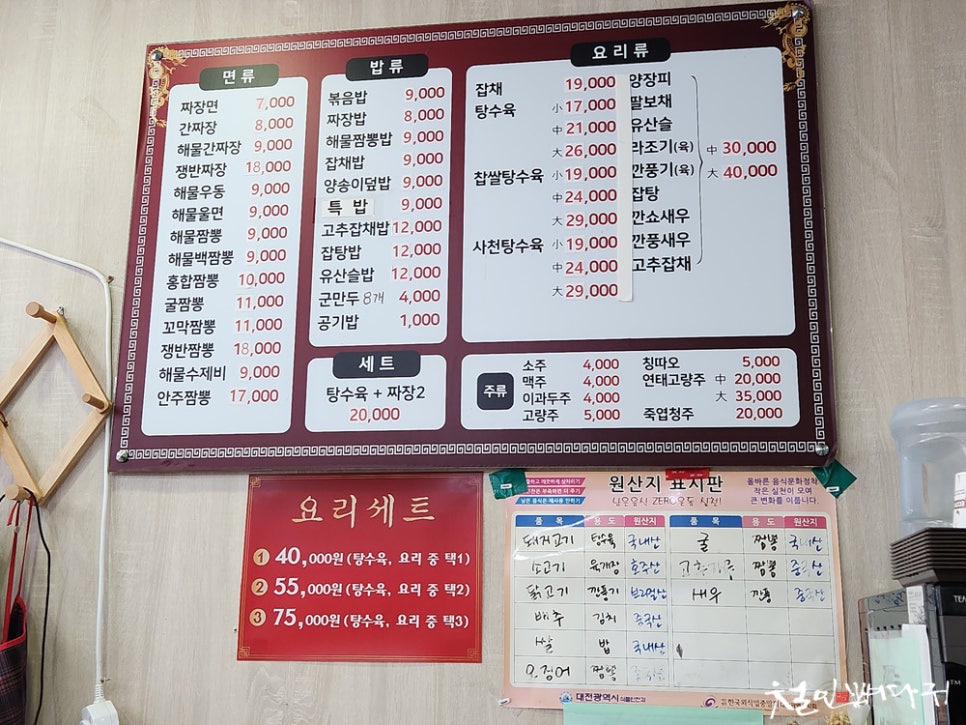 면류
짜장면 7,000
간짜장 8,000
해물간짜장 9,000
쟁반짜장 18,000
해물우동 9,000
해물울면 9,000
해물짬뽕 9,000
해물백짬뽕 9,000
홍합짬뽕 10,000
굴짬뽕 11,000
꼬막짬뽕 11,000
쟁반짬뽕 18,000
해물수제비 9,000
안주짬뽕 17,000
밥류
볶음밥 9,000
짜장밥 8,000
해물짬뽕밥 9,000
잡채밥 9,000
양송이덮밥 9,000
특밥 9,000
고추잡채밥 12,000
잡탕밥 12,000
유산슬밥 12,000
군만두 8개 4,000
공기밥 1,000
세트
탕수육 + 짜장2
20,000
요리류
잡채 19,000
탕수육 小 17,000
中 21,000
大 26,000
찹쌀탕수육 小 19,000
中 24,000
大 29,000
사천탕수육 小 19,000
中 24,000
大 29,000
양장피
팔보채
유산슬
라조기(육)
깐풍기(육)
잡탕
깐쇼새우
깐풍새우
고추잡채
中 30,000
大 40,000
주류
소주 4,000
맥주 4,000
이과두주 4,000
고량주 5,000
칭따오 5,000
연태고량주 中 20,000
大 35,000
죽엽청주 20,000
요리세트
1 40,000원 (탕수육, 요리 중 택1)
2 55,000원 (탕수육, 요리 중 택2)
3 75,000원 (탕수육, 요리 중 택3)
원산지 표시판
남은음식 ZERO운동 실천!
올바른 음식문화정착
작은 실천이 모여
큰 변화를 이룹니다.
품목 용도 원산지 품목 용도 원산지
돼지고기 탕수육 국내산 굴 짬뽕 국내산
소고기 육개장 호주산 짬뽕 중국산
닭고기 깐풍기 브라질산 새우 깐풍 중국산
배추 김치 중국산
쌀 밥 국내산
오징어 짬뽕
대전광역시